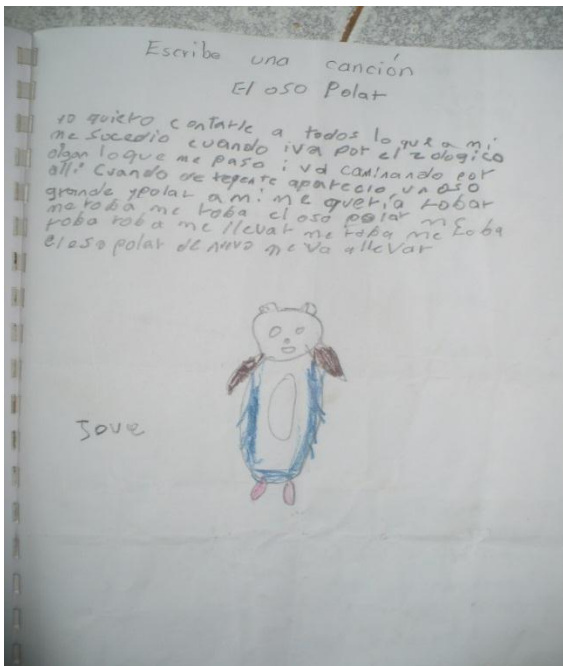 Escribe una canción
El oso Polar
yo quiero contarle a todos lo que a mi
me sucedio cuando iva por el zologico
oigan lo que me paso iva caminando por
alli cuando de repente aparecio un oso
grande y polar a mi me queria robar
me roba me roba el oso polar me
roba roba me llevar me roba me roba
el oso polar de nuvo me va allevar